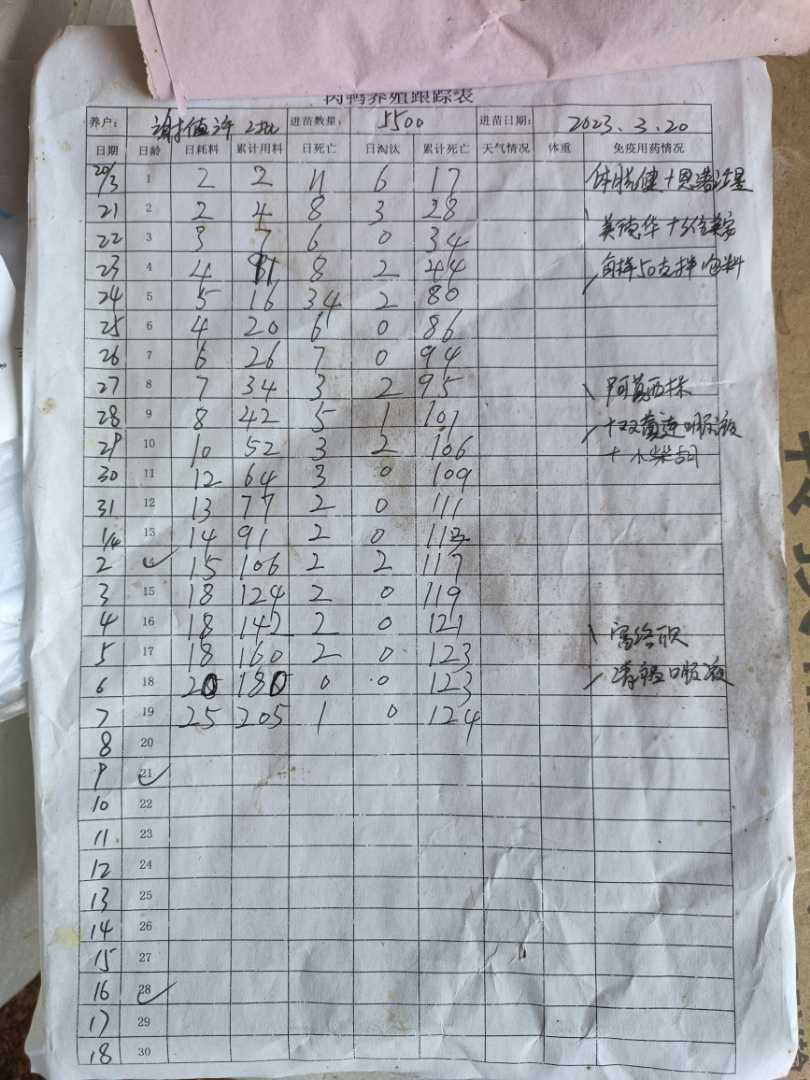 肉鸭养殖跟踪表
养户： 谢值许 2批 进苗数量： 5500 进苗日期： 2023.3.20
日期 日龄 日耗料 累计用料 日死亡 日淘汰 累计死亡 天气情况 体重 免疫用药情况
20/3 1 2 2 11 6 17
21 2 2 4 8 3 28
22 3 3 7 6 0 34
23 4 4 11 8 2 44
24 5 5 16 34 2 80
25 6 4 20 6 0 86
26 7 6 26 7 0 94
27 8 7 34 3 2 95 阿莫西林
28 9 8 42 5 1 101 +双黄连口服液
29 10 10 52 3 2 106 +小柴胡
30 11 12 64 3 0 109
31 12 13 77 2 0 111
1/4 13 14 91 2 0 113
2 15 106 2 2 117
3 15 18 124 2 0 119
4 16 18 142 2 0 121
5 17 18 160 2 0 123
6 18 20 180 0 0 123 口服液
7 19 25 205 1 0 124
8 20
9 21
10 22
11 23
12 24
13 25
14 26
15 27
16 28
17 29
18 30